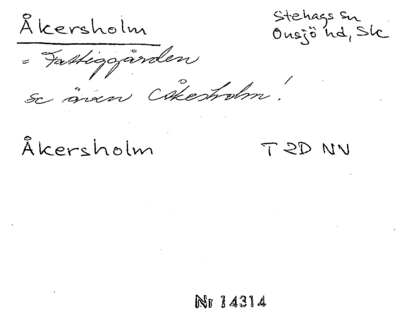 Åkersholm
Stehags sn
Onsjö hd, Sk
= Fattiggården
se även Åkesholm!
Åkersholm T 2D NV
Nr 14314